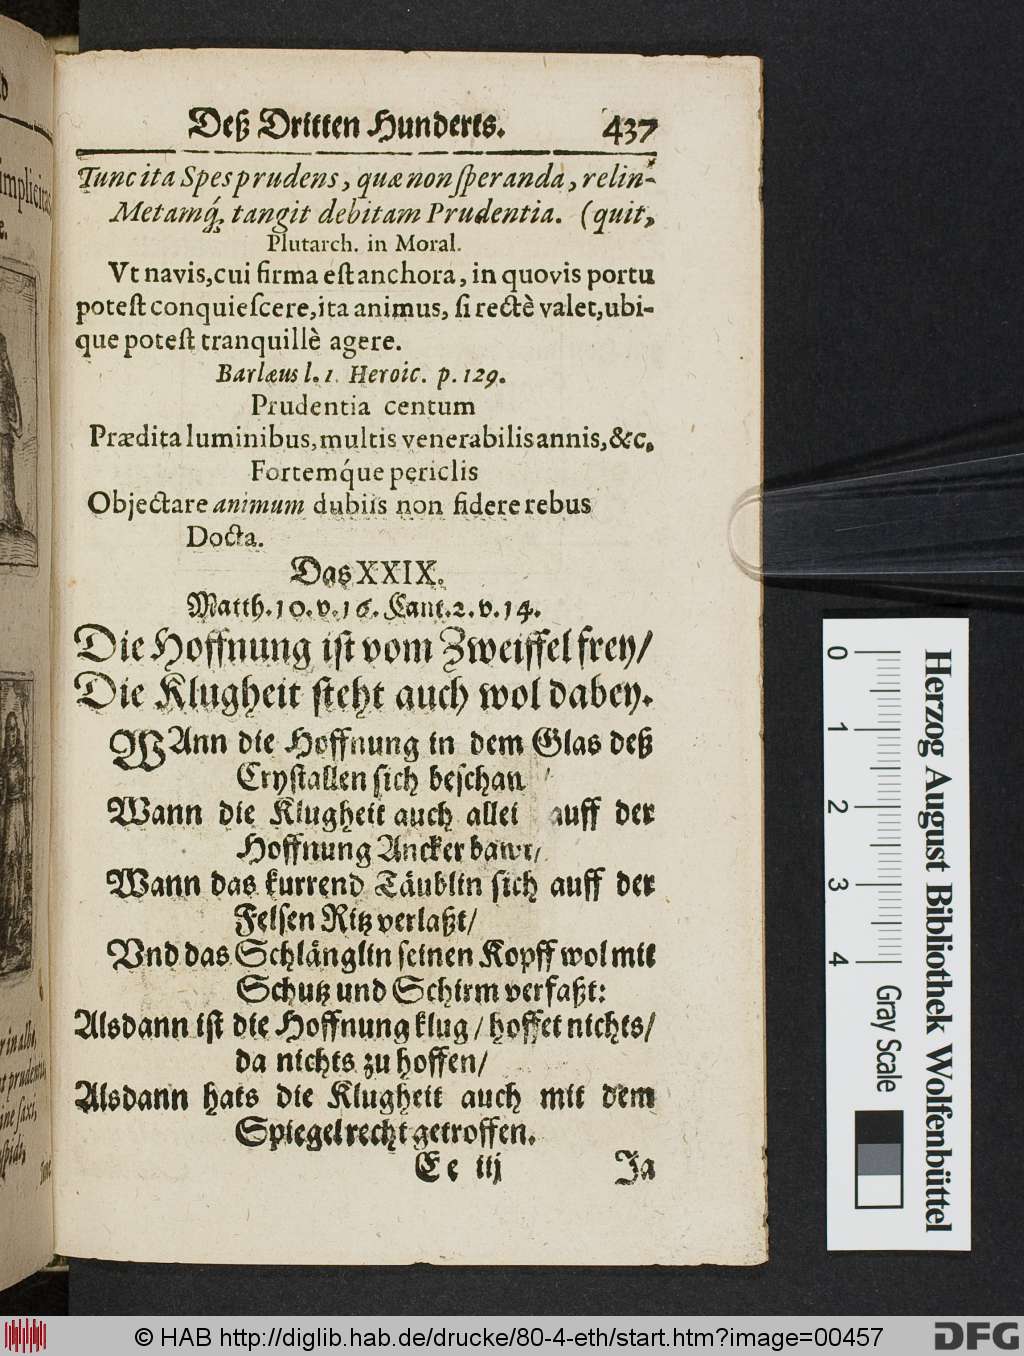 Deß Dritten Hunderts. 437
Tunc ita Spes prudens, quæ non speranda, relin-
Metamq́, tangit debitam Prudentia. (quit,
Plutarch. in Moral.
Vt navis, cui firma est anchora, in quovis portu
potest conquiescere, ita animus, si rectè valet, ubi-
que potest tranquillè agere.
Barlæus l. 1. Heroic. p. 129.
Prudentia centum
Prædita luminibus, multis venerabilis annis, &c.
Fortemq́ue periclis
Objectare animum dubiis non fidere rebus
Docta.
Das XXIX.
Matth. 10. v. 16. Cant. 2. v. 14.
Die Hoffnung ist vom Zweiffel frey/
Die Klugheit steht auch wol dabey.
WAnn die Hoffnung in dem Glas deß
Crystallen sich beschau
Wann die Klugheit auch allei auff der
Hoffnung Ancker bawt/
Wann das kurrend Täublin sich auff der
Felsen Ritz verlaßt/
Vnd das Schlänglin seinen Kopff wol mit
Schutz und Schirm verfaßt:
Alsdann ist die Hoffnung klug / hoffet nichts/
da nichts zu hoffen/
Alsdann hats die Klugheit auch mit dem
Spiegel recht getroffen.
Ee iij Ja
0 1 2 3 4
Gray Scale
Herzog August Bibliothek Wolfenbüttel
© HAB http://diglib.hab.de/drucke/80-4-eth/start.htm?image=00457
DFG